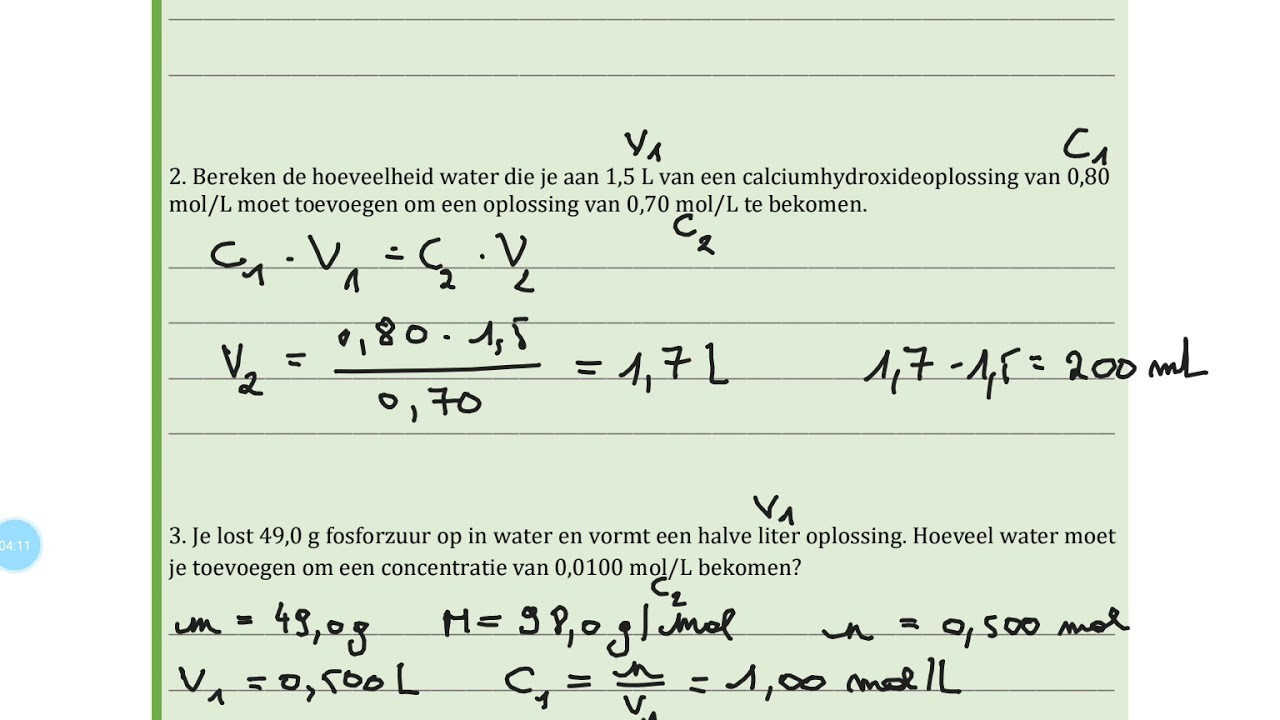 V₁ C₁
2. Bereken de hoeveelheid water die je aan 1,5 L van een calciumhydroxideoplossing van 0,80
mol/L moet toevoegen om een oplossing van 0,70 mol/L te bekomen.
C₂
C₁ . V₁ = C₂ . V₂
V₂ = (0,80 . 1,5) / 0,70 = 1,7 L 1,7 - 1,5 = 200 mL
V₁
3. Je lost 49,0 g fosforzuur op in water en vormt een halve liter oplossing. Hoeveel water moet
je toevoegen om een concentratie van 0,0100 mol/L bekomen?
C₂
m = 49,0 g M = 98,0 g/mol n = 0,500 mol
04:11
V₁ = 0,500 L C₁ = n / V₁ = 1,00 mol/L